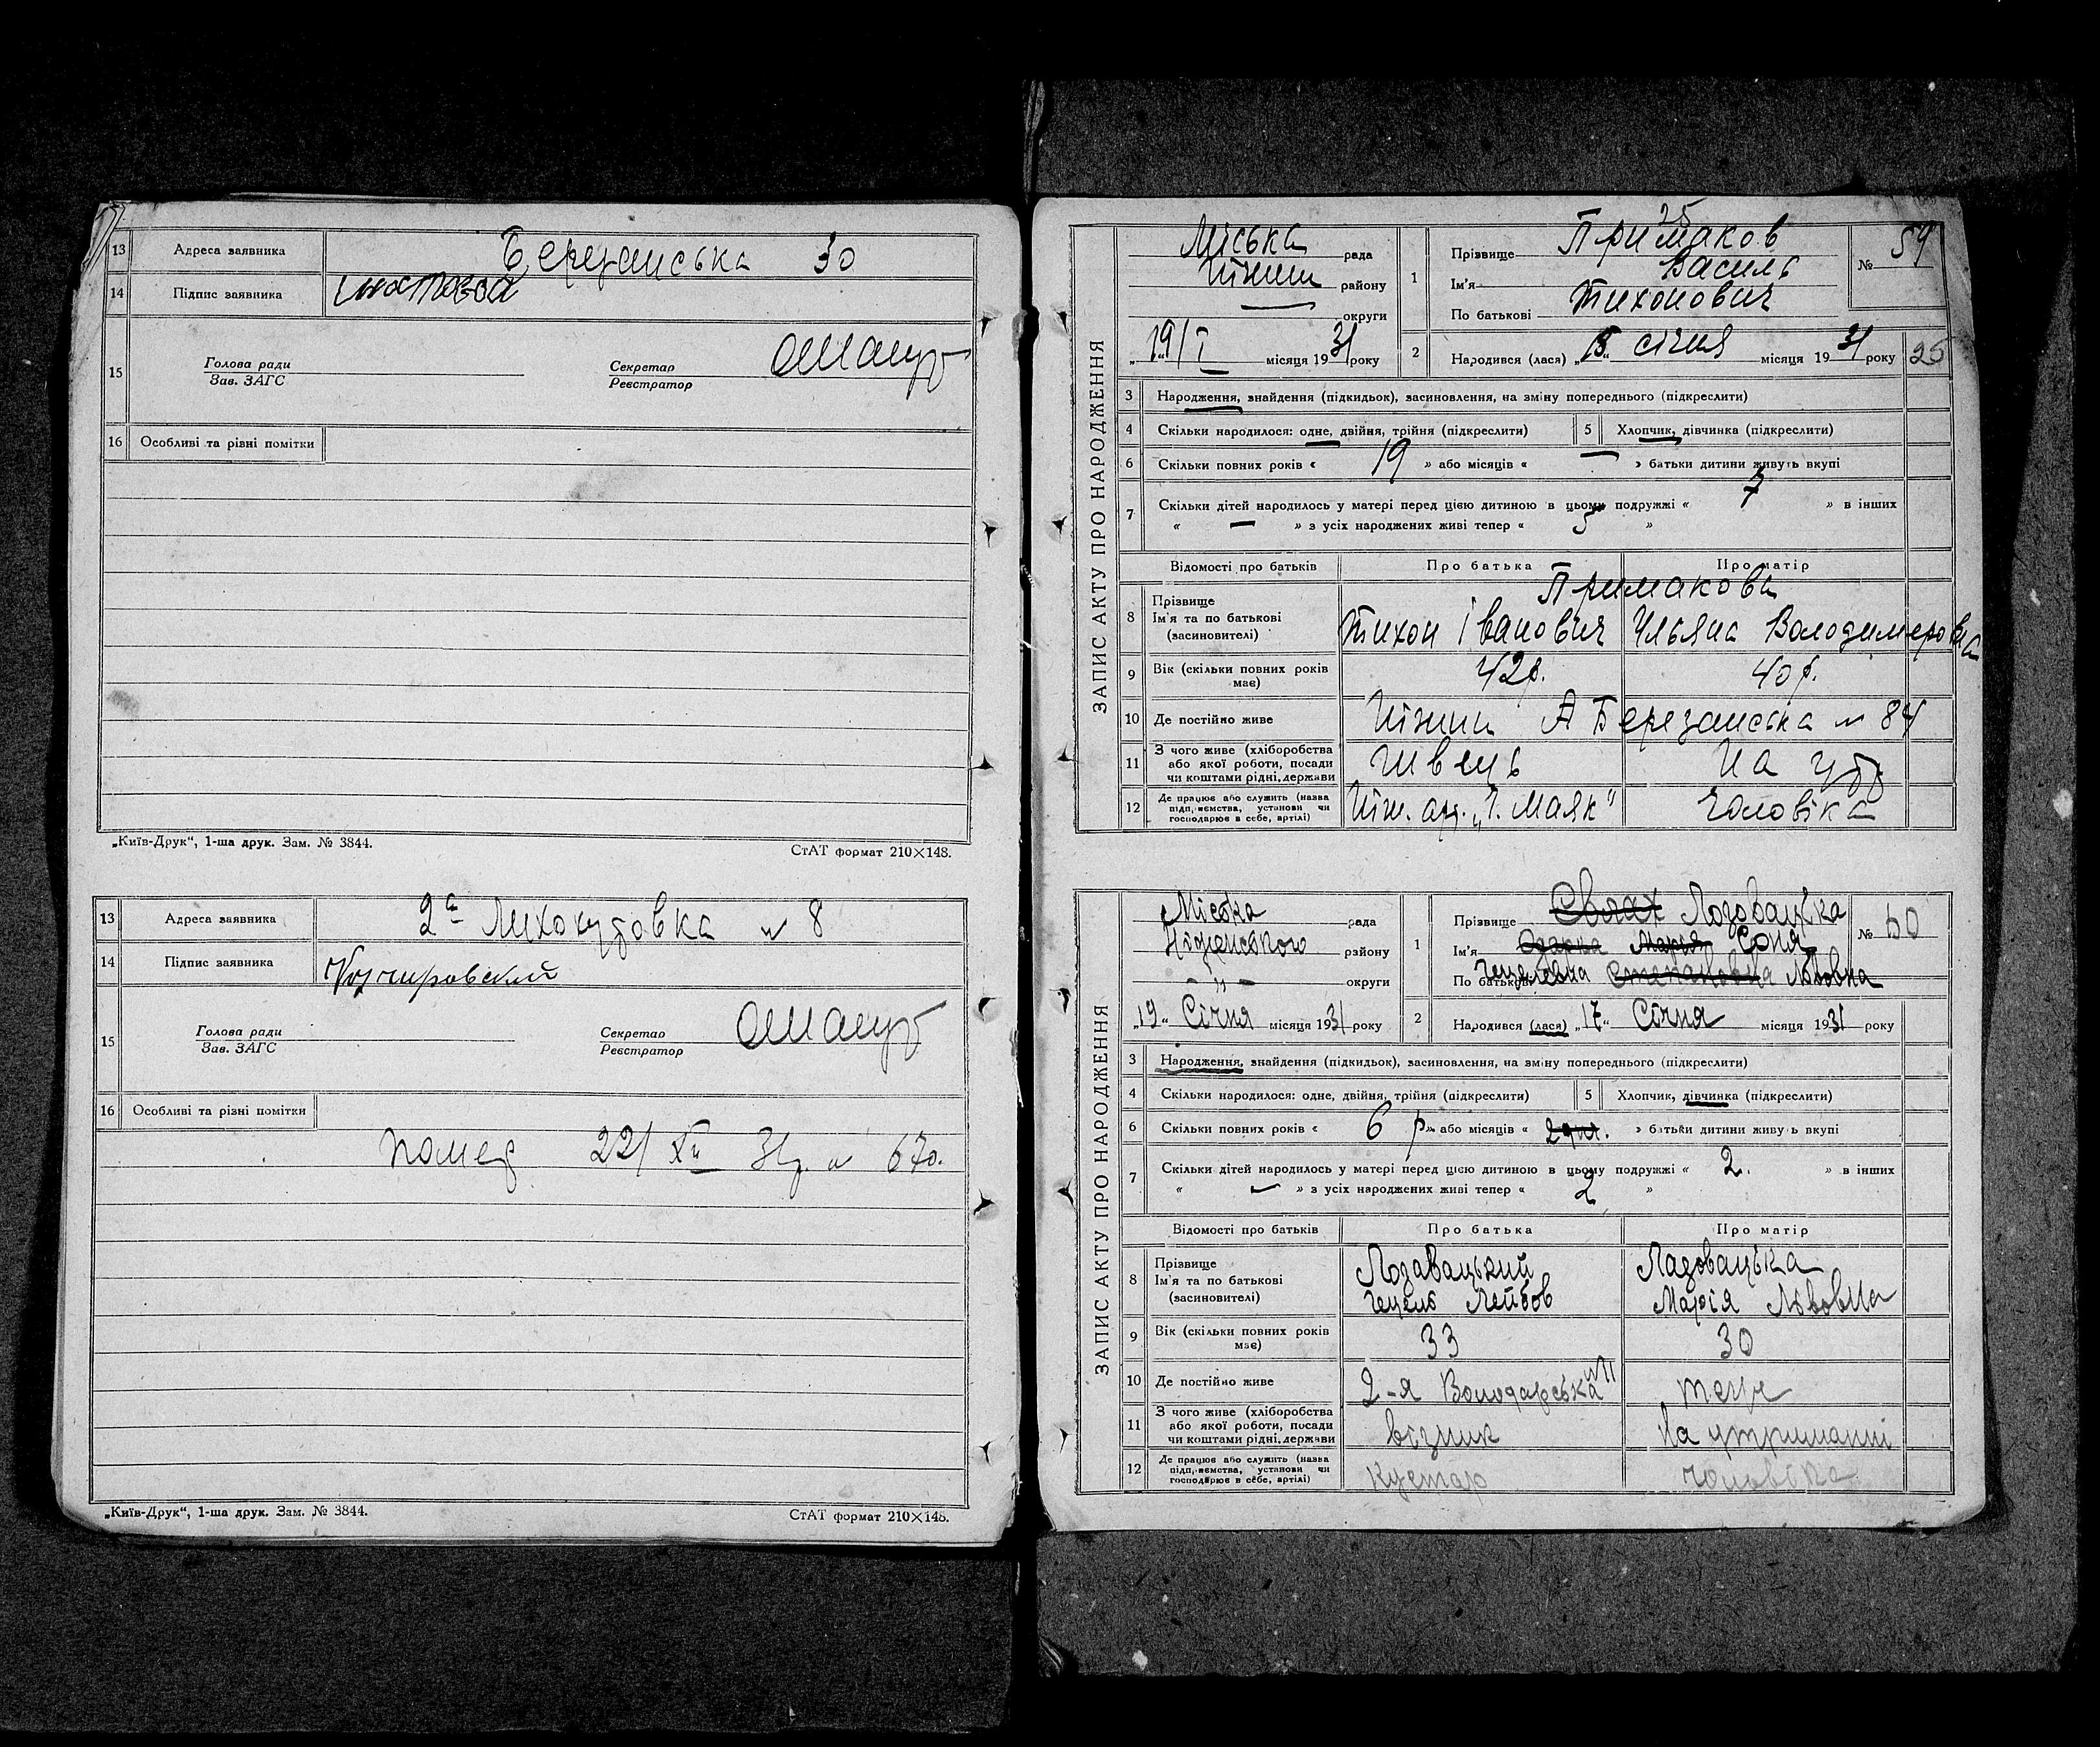 13 Адреса заявника Березанська 30
14 Підпис заявника
15 Голова ради Секретар
Зав. ЗАГС Реєстратор
16 Особливі та різні помітки
„Київ-Друк“, 1-ша друк. Зам. № 3844. СтАТ формат 210×148.
13 Адреса заявника 2а Лихокутовка № 8
14 Підпис заявника
15 Голова ради Секретар
Зав. ЗАГС Реєстратор
16 Особливі та різні помітки
помер 22/XII 31р. № 670.
„Київ-Друк“, 1-ша друк. Зам. № 3844. СтАТ формат 210×148.
25
ЗАПИС АКТУ ПРО НАРОДЖЕННЯ
Міська рада
Ніжин району
— округи
„19“/I місяця 1931 року
1 Прізвище Примаков № 59
Ім'я Василь
По батькові Тихонович
2 Народився (лася) „18“ січня місяця 1931 року 25
3 Народження, знайдення (підкидьок), засиновлення, на зміну попереднього (підкреслити)
4 Скільки народилося: одне, двійня, трійня (підкреслити) 5 Хлопчик, дівчинка (підкреслити)
6 Скільки повних років « 19 » або місяців « — » батьки дитини живуть вкупі
7 Скільки дітей народилось у матері перед цією дитиною в цьому подружжі « 7 » в інших
« — » з усіх народжених живі тепер « 5 »
Відомості про батьків Про батька Про матір
8 Прізвище Примакови
Ім'я та по батькові Тихон Іванович Ульяна Володимеровна
(засиновителі)
9 Вік (скільки повних років має) 42р. 40р.
10 Де постійно живе Ніжин Березанська № 84
11 З чого живе (хліборобства або якої роботи, посади чи коштами рідні, держави Швець На утр
12 Де працює або служить (назва підприємства, установи чи господарює в себе, артілі) Ніж. арт. „Ч. Маяк“ чоловіка
ЗАПИС АКТУ ПРО НАРОДЖЕННЯ
Міська рада
Ніженського району
—„— округи
„19“ Січня місяця 1931 року
1 Прізвище Лозовацька № 60
Ім'я Марія Соня
По батькові Гецелевна Степановна Львовна
2 Народився (лася) „17“ Січня місяця 1931 року
3 Народження, знайдення (підкидьок), засиновлення, на зміну попереднього (підкреслити)
4 Скільки народилося: одне, двійня, трійня (підкреслити) 5 Хлопчик, дівчинка (підкреслити)
6 Скільки повних років « 6 р » або місяців « » батьки дитини живуть вкупі
7 Скільки дітей народилось у матері перед цією дитиною в цьому подружжі « 2. » в інших
« — » з усіх народжених живі тепер « 2 »
Відомості про батьків Про батька Про матір
8 Прізвище Лозавацький Лазовацька
Ім'я та по батькові Гецель Лейбов Марія Львовна
(засиновителі)
9 Вік (скільки повних років має) 33 30
10 Де постійно живе 2-я Володарська №11 теж
11 З чого живе (хліборобства або якої роботи, посади чи коштами рідні, держави візник На утриманні
12 Де працює або служить (назва підприємства, установи чи господарює в себе, артілі) Кустар чоловіка